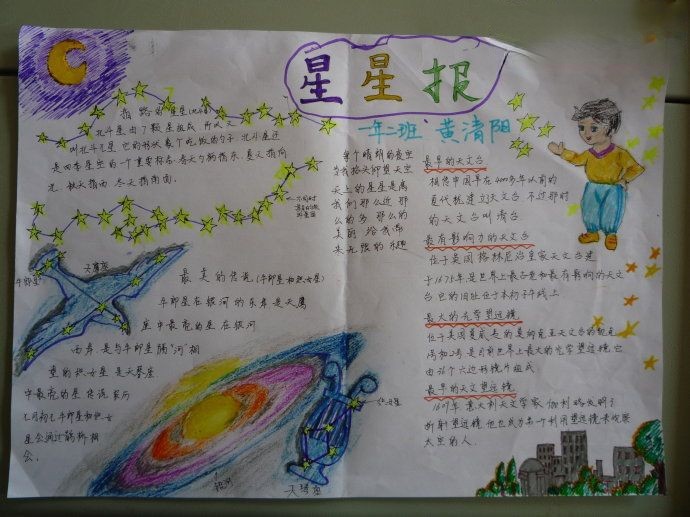 星星报
一年二班 黄清阳
指路的星星(北斗)
北斗星由7颗星组成 所以又
叫北斗七星 它的形状像个吃饭的勺子 北斗星还
是四季星空的一个重要标志 春天勺柄指东 夏天指南
秋天指西 冬天指南面
每个晴朗的夜空
当我抬头仰望天空
天上的星星是离
我们那么近 那
么的多 那么的
美丽 给我带
来无限的乐趣
最早的天文台
相传中国早在4000多年以前的
夏代就建立天文台 不过那时
的天文台叫清台
最有影响力的天文台
位于英国格林尼治皇家天文台建
于1675年是世界上最古老和最有影响的天文
台 它的旧址位于本初子午线上
最大的光学望远镜
位于美国夏威夷的莫纳克亚天文台的凯克
1号和2号是目前世界上最大的光学望远镜 它
由36个六边形镜片组成
最早的天文望远镜
1609年 意大利天文学家伽利略发明了
折射望远镜 他也成为第一个利用望远镜来观察
太空的人.
天鹰座
牛郎星
最美的传说(牛郎星和织女星)
牛郎星在银河的东岸是天鹰
座中最亮的星 在银河
西岸 是与牛郎星隔“河”相
望的织女星 是天琴座
中最亮的星 传说农历
七月初七牛郎星和织女
星会通过鹊桥相
会。
织女星
银河
天琴座